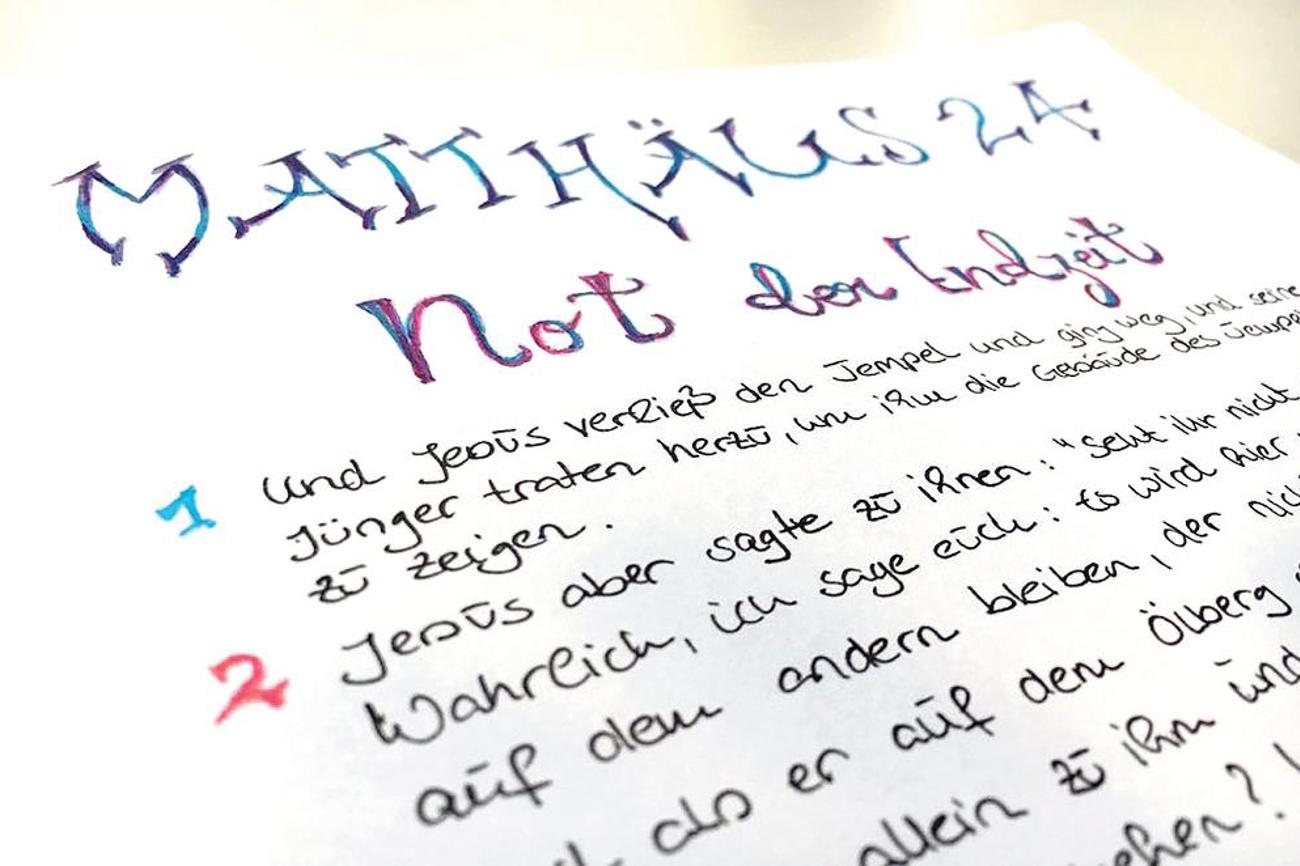 MATTHÄUS 24
Not der Endzeit
1 Und Jesūs verließ den Tempel und ging weg, und seine
Jünger traten herzū, um ihm die Gebäude des Tempels
zū zeigen.
2 Jesūs aber sagte zū ihnen: "Seht ihr nicht
Wahrlich, ich sage eūch: Es wird hier
aūf dem andern bleiben, der
als er aūf dem Ölberg
allein zū ihm ūnd
?